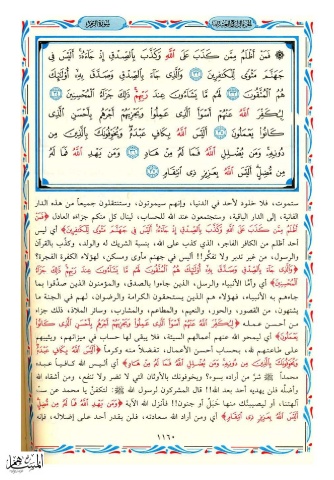 فَمَنْ أَظْلَمُ مِمَّن كَذَبَ عَلَى اللَّهِ وَكَذَّبَ بِالصِّدْقِ إِذْ جَاءَهُ أَلَيْسَ فِي
جَهَنَّمَ مَثْوًى لِّلْكَافِرِينَ ٣٢ وَالَّذِي جَاءَ بِالصِّدْقِ وَصَدَّقَ بِهِ أُولَٰئِكَ
هُمُ الْمُتَّقُونَ ٣٣ لَهُم مَّا يَشَاءُونَ عِندَ رَبِّهِمْ ذَٰلِكَ جَزَاءُ الْمُحْسِنِينَ ٣٤
لِيُكَفِّرَ اللَّهُ عَنْهُمْ أَسْوَأَ الَّذِي عَمِلُوا وَيَجْزِيَهُمْ أَجْرَهُم بِأَحْسَنِ الَّذِي
كَانُوا يَعْمَلُونَ ٣٥ أَلَيْسَ اللَّهُ بِكَافٍ عَبْدَهُ وَيُخَوِّفُونَكَ بِالَّذِينَ مِن
دُونِهِ وَمَن يُضْلِلِ اللَّهُ فَمَا لَهُ مِنْ هَادٍ ٣٦ وَمَن يَهْدِ اللَّهُ فَمَا لَهُ
مِن مُّضِلٍّ أَلَيْسَ اللَّهُ بِعَزِيزٍ ذِي انتِقَامٍ ٣٧
ستموت، فلا خلود لأحد في الدنيا، وإنهم سيموتون، وستنتقلون جميعاً من هذه الدار
الفانية، إلى الدار الباقية، وستجتمعون عند الله للحساب، لينال كل منكم جزاءه العادل ﴿فَمَنْ
أَظْلَمُ مِمَّن كَذَبَ عَلَى اللَّهِ وَكَذَّبَ بِالصِّدْقِ إِذْ جَاءَهُ أَلَيْسَ فِي جَهَنَّمَ مَثْوًى لِّلْكَافِرِينَ﴾ أي ليس
أحد أظلم من الكافر الفاجر، الذي كذب على الله، بنسبة الشريك له والولد، وكذَّب بالقرآن
والرسول، من غير تدبر ولا تفكُّر!! أليس في جهنم مأوى ومسكن، لهؤلاء الكفرة الفجرة؟
﴿وَالَّذِي جَاءَ بِالصِّدْقِ وَصَدَّقَ بِهِ أُولَٰئِكَ هُمُ الْمُتَّقُونَ لَهُم مَّا يَشَاءُونَ عِندَ رَبِّهِمْ ذَٰلِكَ جَزَاءُ
الْمُحْسِنِينَ﴾ أي وأمَّا الأنبياء والرسل، الذين جاءوا بالصدق، والمؤمنون الذين صدَّقوا بما
جاءهم به الأنبياء، فهؤلاء هم الذين يستحقون الكرامة والرضوان، لهم في الجنة ما
يشتهون، من القصور، والحور، والنعيم، والمطاعم، والمشارب، وسائر الملاذ، ذلك جزاء
من أحسن عمله ﴿لِيُكَفِّرَ اللَّهُ عَنْهُمْ أَسْوَأَ الَّذِي عَمِلُوا وَيَجْزِيَهُمْ أَجْرَهُم بِأَحْسَنِ الَّذِي كَانُوا
يَعْمَلُونَ﴾ أي ليمحو الله عنهم أعمالهم السيئة، فلا يبقى لها حساب في ميزانهم، ويثيبهم
على طاعتهم لله، بحساب أحسن الأعمال، تفضلاً منه وكرماً ﴿أَلَيْسَ اللَّهُ بِكَافٍ عَبْدَهُ
وَيُخَوِّفُونَكَ بِالَّذِينَ مِن دُونِهِ وَمَن يُضْلِلِ اللَّهُ فَمَا لَهُ مِنْ هَادٍ﴾ أي أليس الله كافياً عبده
محمداً ﷺ شرَّ من أراده بسوء؟ ويخوفونك بالأوثان التي لا تضر ولا تنفع، ومن أشقاه الله
وأضلَّه فلن يهديه أحد بعد الله!! قال المشركون لرسول الله ﷺ: لتكفنَّ يا محمد عن سبّ
آلهتنا، أو ليصيبنَّك منها خَبَلٌ أو جنون!! فأنزل الله الآية ﴿وَمَن يَهْدِ اللَّهُ فَمَا لَهُ مِن مُّضِلٍّ
أَلَيْسَ اللَّهُ بِعَزِيزٍ ذِي انتِقَامٍ﴾ أي ومن أراد الله سعادته، فلن يقدر أحد على إضلاله، فإنه
١١٦٠